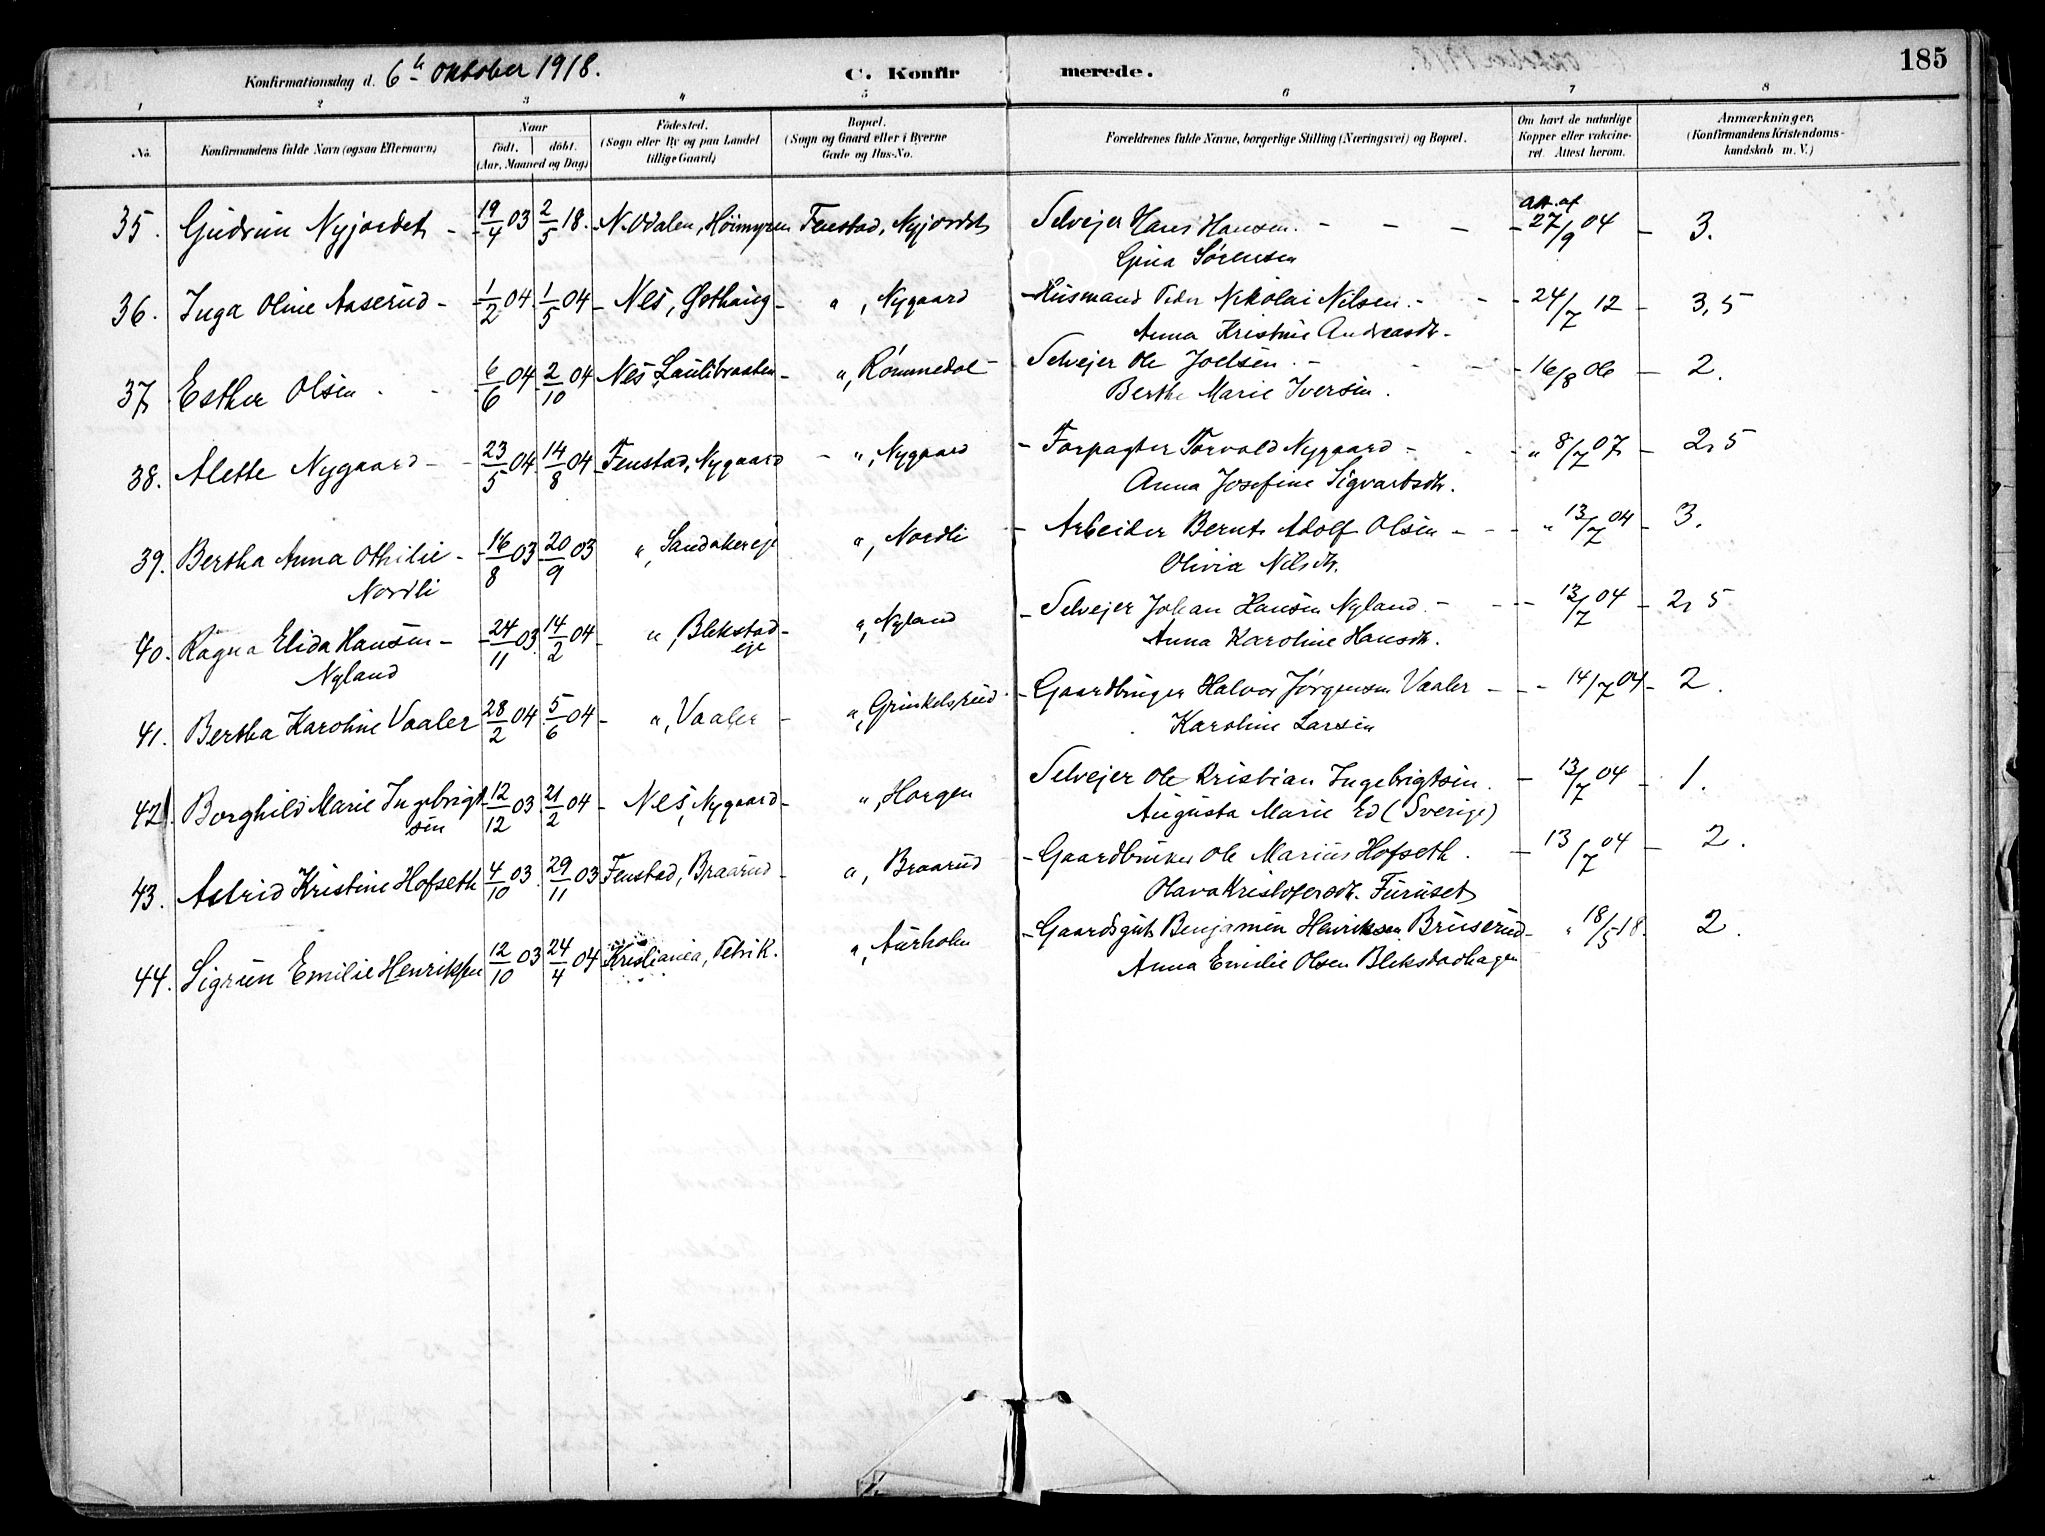 Konfirmationsdag d. 6te Oktober 1918. C. Konfirmerede. 185
1 2 3 4 5 6 7 8
No. Konfirmandens fulde Navn (ogsaa Efternavn) Naar født. døbt. (Aar, Maaned og Dag) Fødested. (Sogn eller By og paa Landet tillige Gaard) Bopæl. (Sogn og Gaard eller i Byerne Gade og Hus-No. Forældrenes fulde Navne, borgerlige Stilling (Næringsvei) og Bopæl. Om havt de naturlige Kopper eller vakcineret. Attest herom. Anmærkninger. (Konfirmandens Kristendomskundskab m. V.)
35. Gudrun Nyjordet 19/4 03 2/5 18. N. Odalen, Høimyren Fenstad, Nyjordet Selvejer Hans Hansen. att. af 27/9 04 3.
Gina Sørensen
36. Inga Oline Aaserud 1/2 04 1/5 04 Nes, Gethaug " , Nygaard Husmand Peder Nikolai Nilsen. 24/7 12 3,5
Anna Kristine Andreasdtr.
37. Esther Olsen 6/6 04 2/10 04 Nes Laulibraaten ", Rømmedal Selvejer Ole Joelsen. 16/8 06 2.
Berthe Marie Iversen.
38. Alette Nygaard 23/5 04 14/8 04 Fenstad, Nygaard ", Nygaard Forpagter Torvald Nygaard " 8/7 07 2,5
Anna Josefine Sigvartsdtr.
39. Bertha Anna Othilie 16/8 03 20/9 03 ", Sandakereje ", Nordli Arbeider Bernt Adolf Olsen " 13/7 04 3.
Nordli Olivia Nilsdtr.
40. Ragna Elida Hansen 24/11 03 14/2 04 ", Blekstad eje ", Nyland Selvejer Johan Hansen Nyland. 13/7 04 2,5
Nyland Anna Karoline Hansdtr.
41. Bertha Karoline Vaaler 28/2 04 5/6 04 ", Vaaler ", Grinkelsrud Gaardbruger Halvor Jørgensen Vaaler 14/7 04 2.
Karoline Larsen
42. Borghild Marie Ingebrigtsen 12/12 03 21/2 04 Nes, Nygaard ", Horgen Selvejer Ole Kristian Ingebrigtsen. 13/7 04 1.
Augusta Marie Ed (Sverige)
43. Astrid Kristine Hofseth 4/10 03 29/11 03 Fenstad, Braarud ", Braarud Gaardbruker Ole Marius Hofseth. 13/7 04 2.
Olava Kristofersdtr. Furuset
44. Sigrun Emilie Henriksen 12/10 03 24/4 04 Kristiania, Petri K. ", Aurholen Gaardsgut Benjamin Henriksen Bruserud " 18/5 18. 2.
Anna Emilie Olsen Blekstadhagen